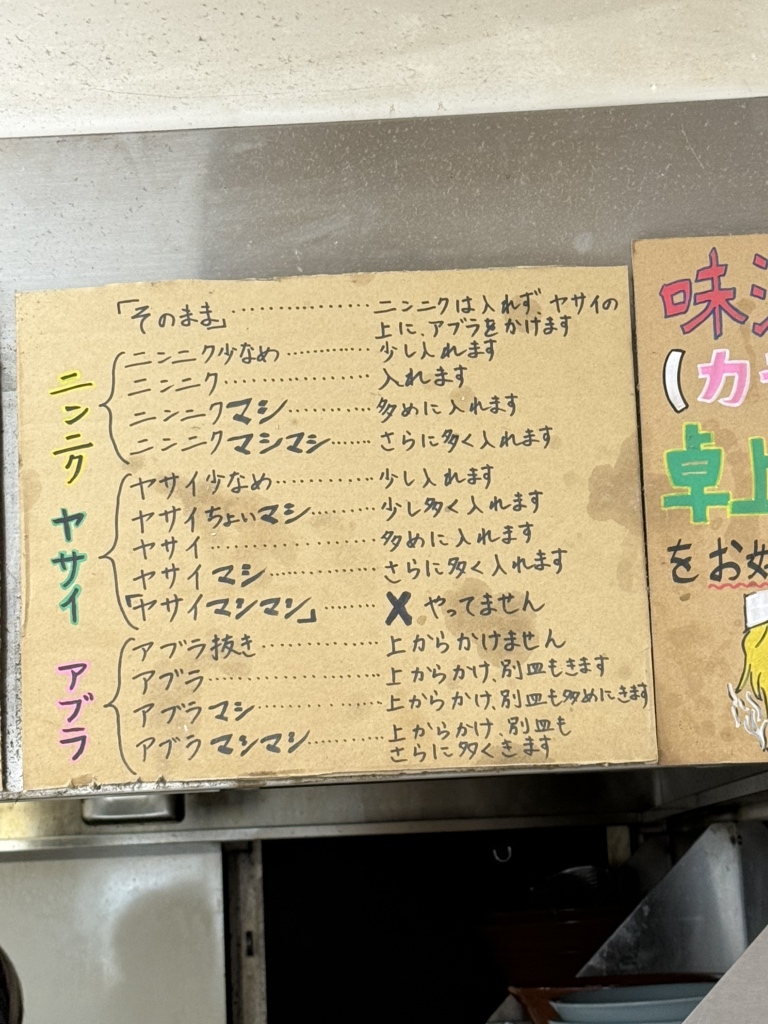 「そのまま」……………ニンニクは入れず、ヤサイの
上に、アブラをかけます
ニンニク
ニンニク少なめ…………少し入れます
ニンニク…………………入れます
ニンニクマシ……………多めに入れます
ニンニクマシマシ………さらに多く入れます
ヤサイ
ヤサイ少なめ……………少し入れます
ヤサイちょいマシ………少し多く入れます
ヤサイ……………………多めに入れます
ヤサイマシ………………さらに多く入れます
「ヤサイマシマシ」……✗ やってません
アブラ
アブラ抜き………………上からかけません
アブラ……………………上からかけ、別皿もきます
アブラマシ………………上からかけ、別皿も多めにきます
アブラマシマシ…………上からかけ、別皿も
さらに多くきます
味
(カ
卓上
をお好